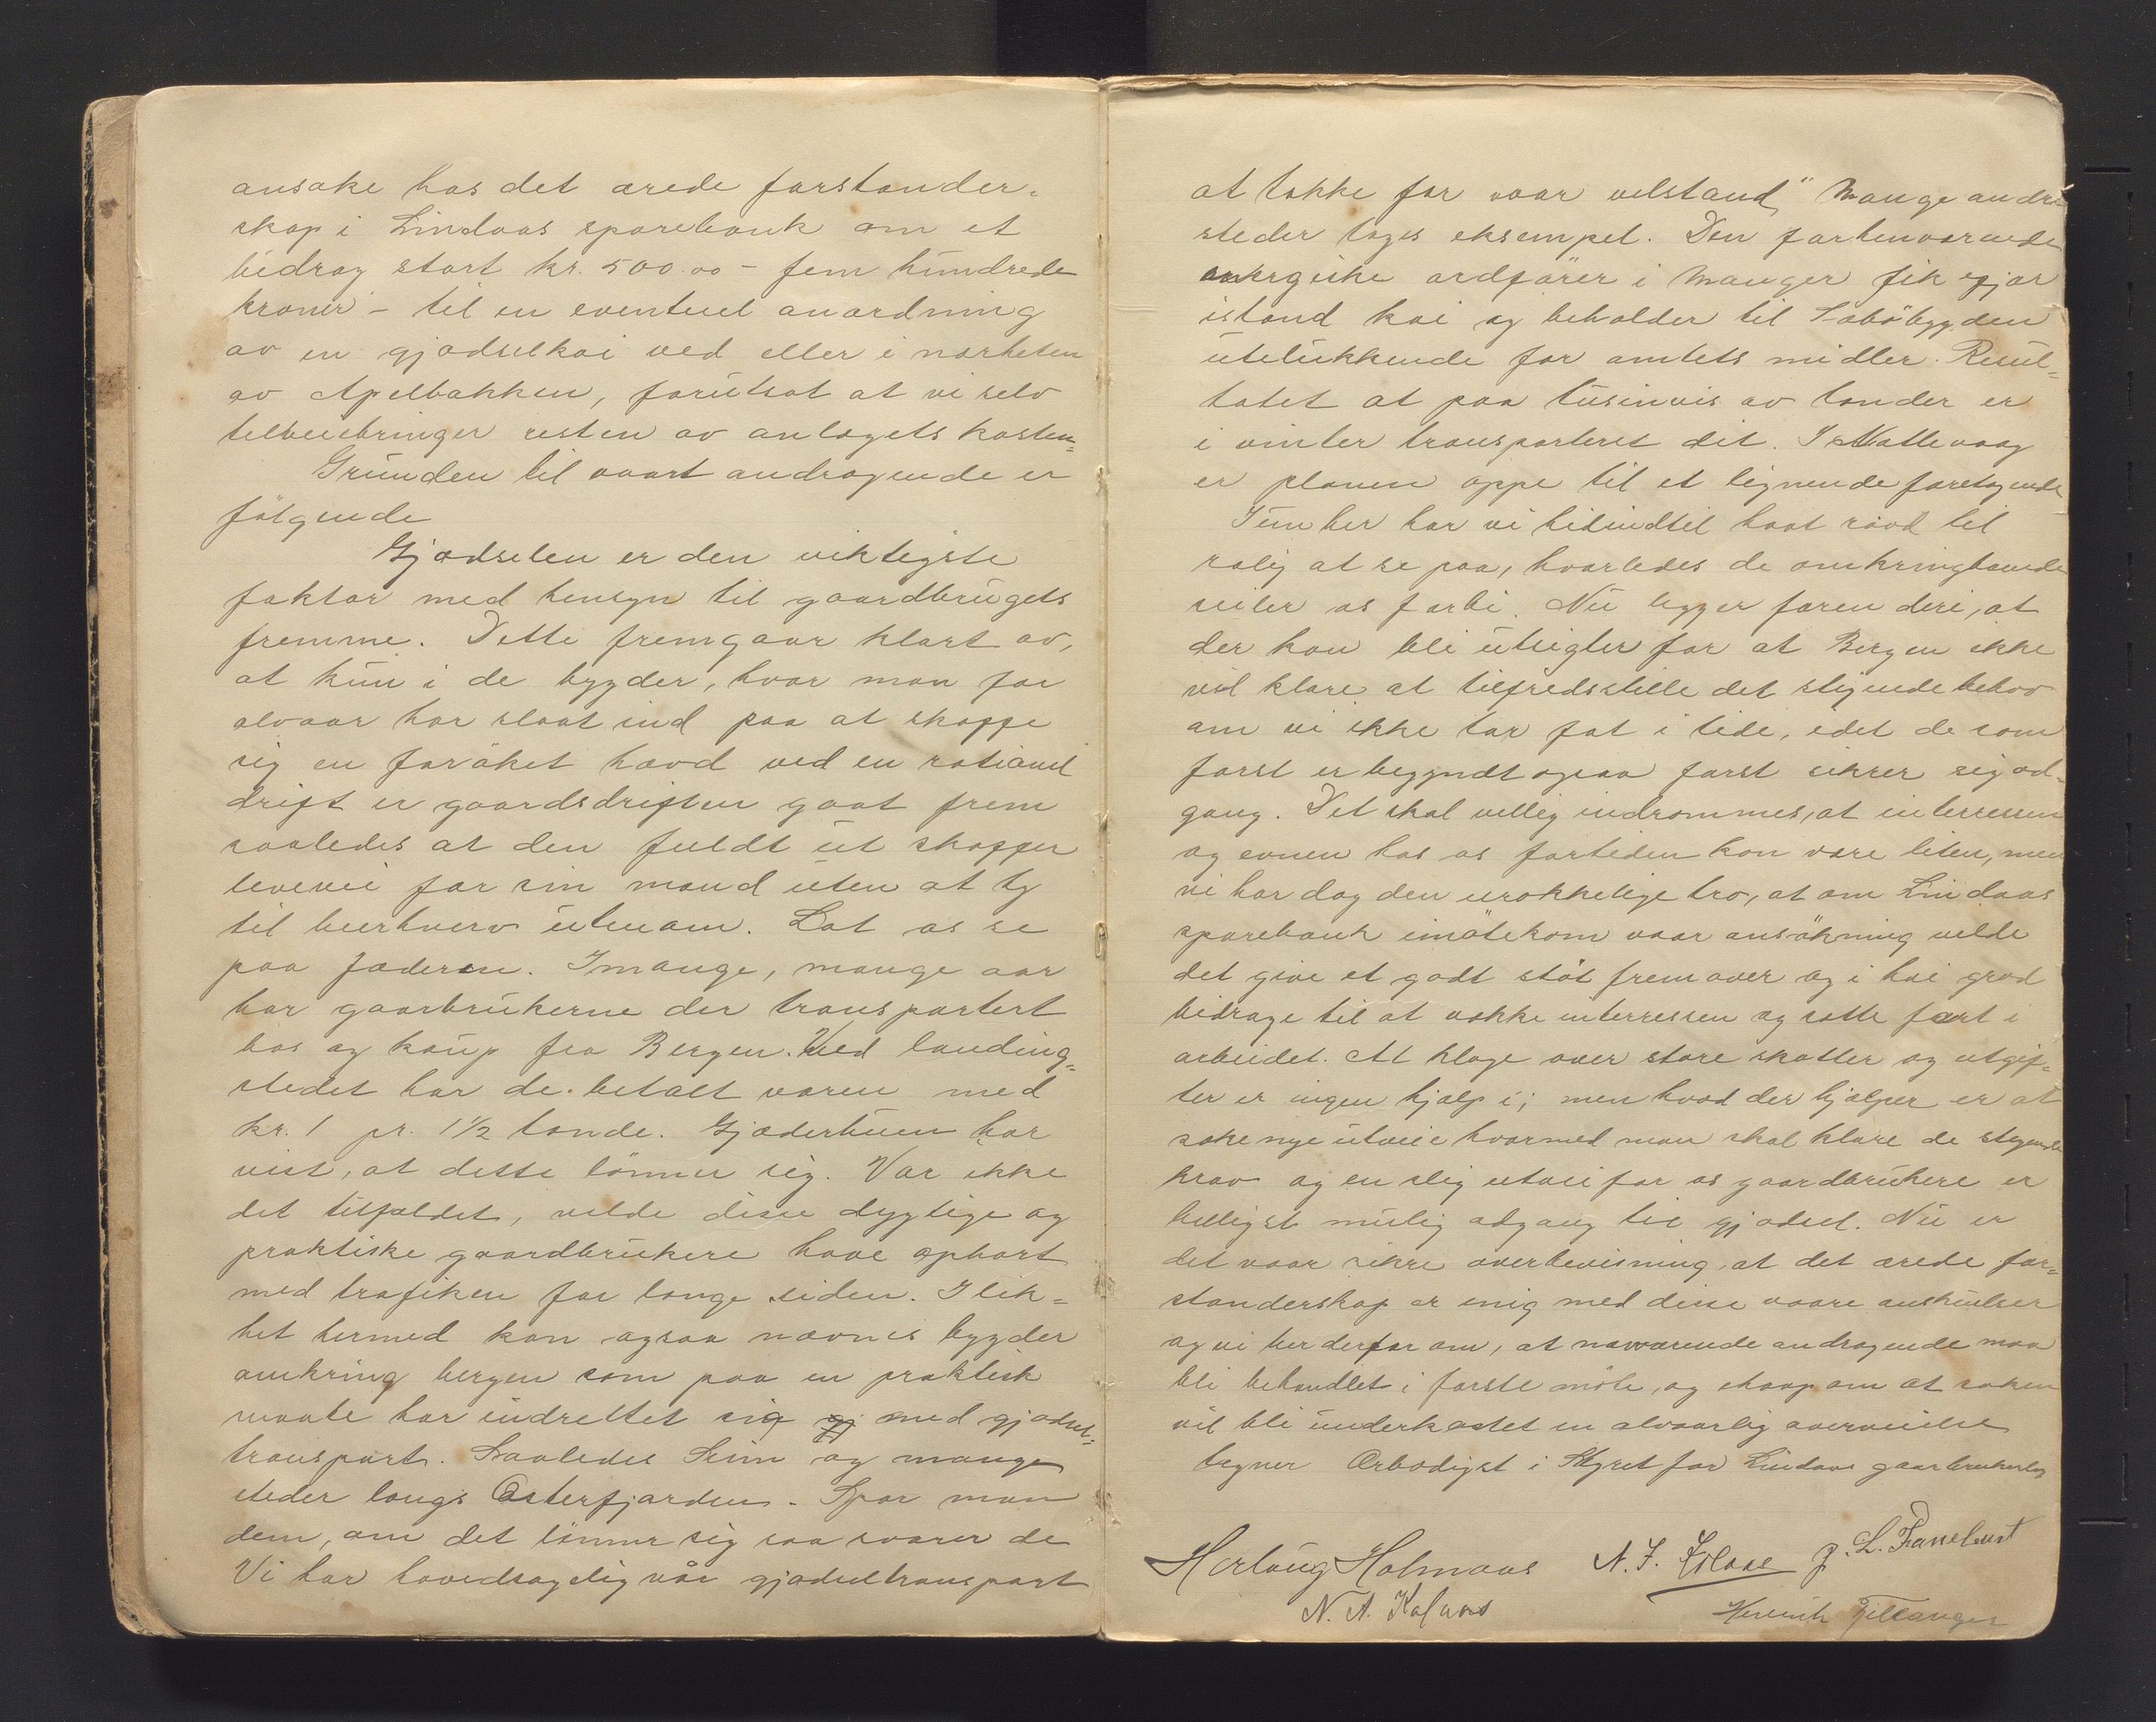 ansøke hos det ærede forstander-
skap i Lindaas sparebank om et
bidrag stort kr. 500.00 – fem hundrede
kroner – til en eventuel anordning
av en gjødselkai ved eller i nærheten
av Apelbakken, forutsat at vi selv
tilveiebringer resten av anlægets kosten=
Grunden til vaart andragende er
følgende
Gjødselen er den viktigste
faktor med hensyn til gaardbrugets
fremme. Dette fremgaar klart av,
at kun i de bygder, hvor man for
alvaar har slaat ind paa at skaffe
sig en forøket hævd ved en rationel
drift er gaardsdriften gaat frem
saaledes at den fuldt ut skaffer
levevei for sin mand uten at ty
til bierhverv utenom. Lat os se
paa Jæderen. I mange, mange aar
har gaarbrukerne der transportert
bos og kaup fra Bergen. Ved landing=
stedet har de betalt varen med
kr. 1 pr. 1½ tønde. Gjæderbuen har
vist, at dette lönner sig. Var ikke
det tilfældet, vilde disse dygtige og
praktiske gaardbrukere have ophørt
med trafiken for længe siden. I lik=
het hermed kan ogsaa nævnes bygder
omkring bergen som paa en praktisk
maate har indrettet sig med gjødsel=
transport. Saaledes Seim og mange
steder langs Osterfjorden. Spør man
dem, om det lönner sig saa svarer de
Vi har hovedsagelig vår gjødseltransport
at takke for vaar velstand" Mange andre
steder tages eksempel. Den forhenværende
energiske ordfører i Manger fik gjør
istand kai og beholder til Sæböbygden
utelukkende for amtets midler. Resul=
tatet at paa tusinvis av tønder er
i vinter transporteret dit. I Hattevaag
er planen oppe til et lignende foretagende
Kun her har vi hitindtil hat raad til
rolig at se paa, hvorledes de omkringboende
seiler os forbi. Nu ligger faren deri, at
der kan bli utsigter for at Bergen ikke
vil klare at tilfredsstille det stigende behov
om vi ikke tar fat i tide, idet de som
først er begyndt ogsaa først sikrer sig ad-
gang. Det skal villig indrømmes, at interressen
og evnen hos os fortiden kan være liten, men
vi har dog den urokkelige tro, at om Lindaas
sparebank imötekom vaar ansökning vilde
det give et godt stöt fremover og i høi grad
bidrage til at vække interressen og sætte fart i
arbeidet. At klage over store skatter og utgif=
ter er ingen hjælp i; men hvad der hjælper er at
søke nye utveie hvormed man skal klare de stigende
krav og en slig utvei for os gaardbrukere er
billigst mulig adgang til gjødsel. Nu er
det vaar sikre overbevisning, at det ærede for=
standerskap er enig med disse vaare anskuelser
og vi ber derfor om, at nærværende andragende maa
bli behandlet i første möte, og haap om at saken
vil bli underkastet en alvaarlig overveielse
tegner Ærbødigst i Styret for Lindaas gaarbrukerlag
Hartvig Holmaas N. J. J. L. Fasselust
N. A. Kolaas Henrik Fillanger